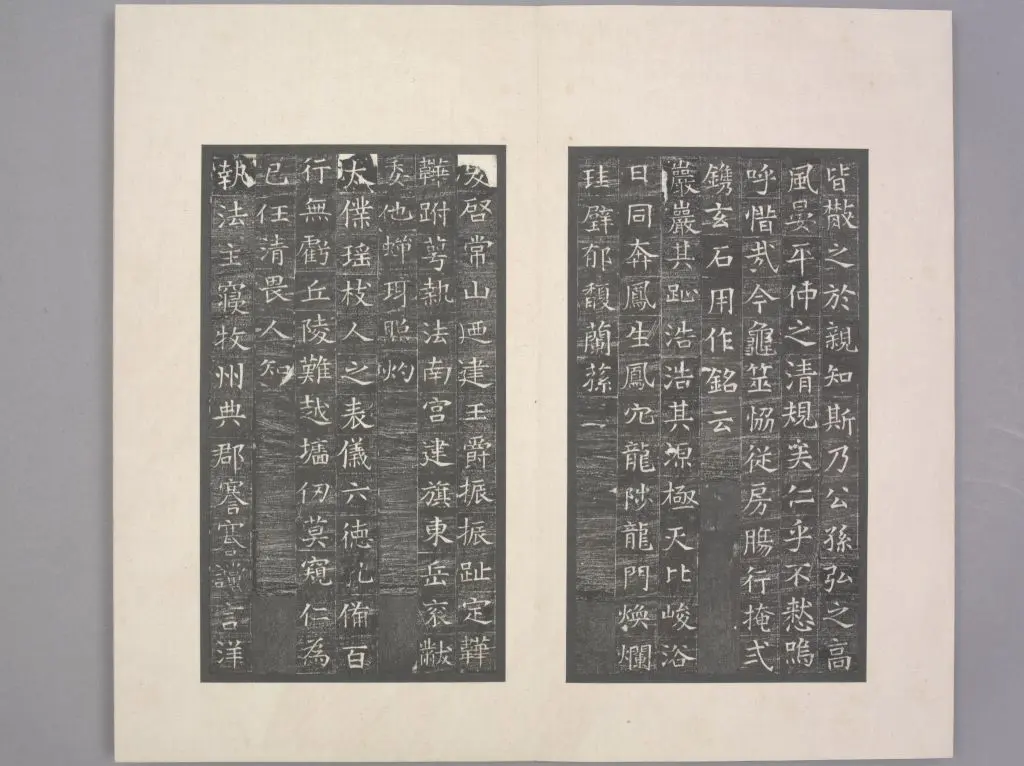 皆散之於親知斯乃公孫弘之高
風晏平仲之清規美仁乎不慭嗚
呼惜哉今龜筮恊従房膓行掩式
鐫玄石用作銘云
巖巖其趾浩浩其源極天比峻浴
日同奔鳳生鳳穴龍陟龍門煥爛
珪璧郁馥蘭蓀一
爰啓常山迺建王爵振振趾定韡
韡跗萼執法南宫建旗東岳衮黻
委他蟬珥照灼
大僕瑶枝人之表儀六徳孔備百
行無虧丘陵難越墻仞莫窺仁為
己任清畏人知
執法主寢牧州典郡謇謇讜言洋